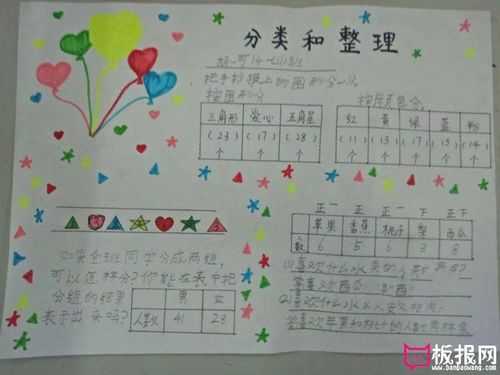 分类和整理
把手抄报上的图形分一分。
按图形分
三角形 爱心 五角星
(23)个 (17)个 (28)个
按颜色分
红 黄 绿 蓝 粉
(11)个 (13)个 (17)个 (13)个 (14)个
如果全班同学分成两组,
可以怎样分?你能在表中把
分组的结果
表示出来吗?
男 女
人数 41 28
正一 正 正一 下 正下
苹果 香蕉 桃子 梨 西瓜
人数 6 5 6 3 8
(1)喜欢什么水果的人
答喜欢西瓜
(2)喜欢什么水
答喜欢苹果和桃子的人数同样多
板报网
www.banbaowang.com